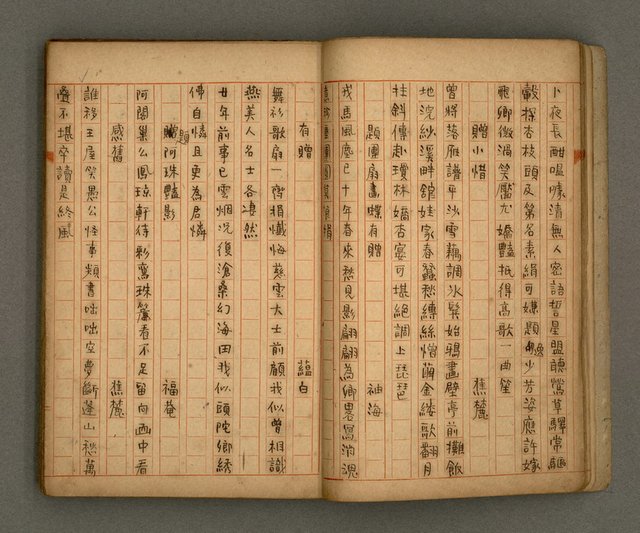 卜夜長酣嗢噱清無人密語哲星盟聽鶯草驛常驅
轂探杏枝頭及第名素絹可嫌題句少芳姿應許嫁
飛卿微渦笑靨尤嬌豔抵得高歌一曲笙
贈小惜 蕉麓
曾將落雁譜平沙雪藕調冰鬢始鴉畫壁亭前攤飯
地浣紗溪畔館娃家春蠶秋縛絲憎繭金縷歌翻月
挂斜傳赴瓊林嬌杏宴可堪絕調上琵琶
題團扇畫蝶有贈 袖海
我馬風塵已十年春來愁見影翩翩為卿畏寫消魂
有贈 蘊白
舞衫歌扇一齊捐懺悔慈雲大士前顧我似曾相識
燕美人名士各淒然
廿年前事已雲烟況復滄桑幻海田我似頭陀卿綉
佛自憐且更為君憐
題贈阿珠豔影 福菴
阿閣巢么鳳琼軒待彩鸞珠簾看不足留向画中看
感舊 蕉麓
誰移王屋笑愚公怪事頻書咄咄空夢斷蓬山秋萬
疊不堪卒讀是終風